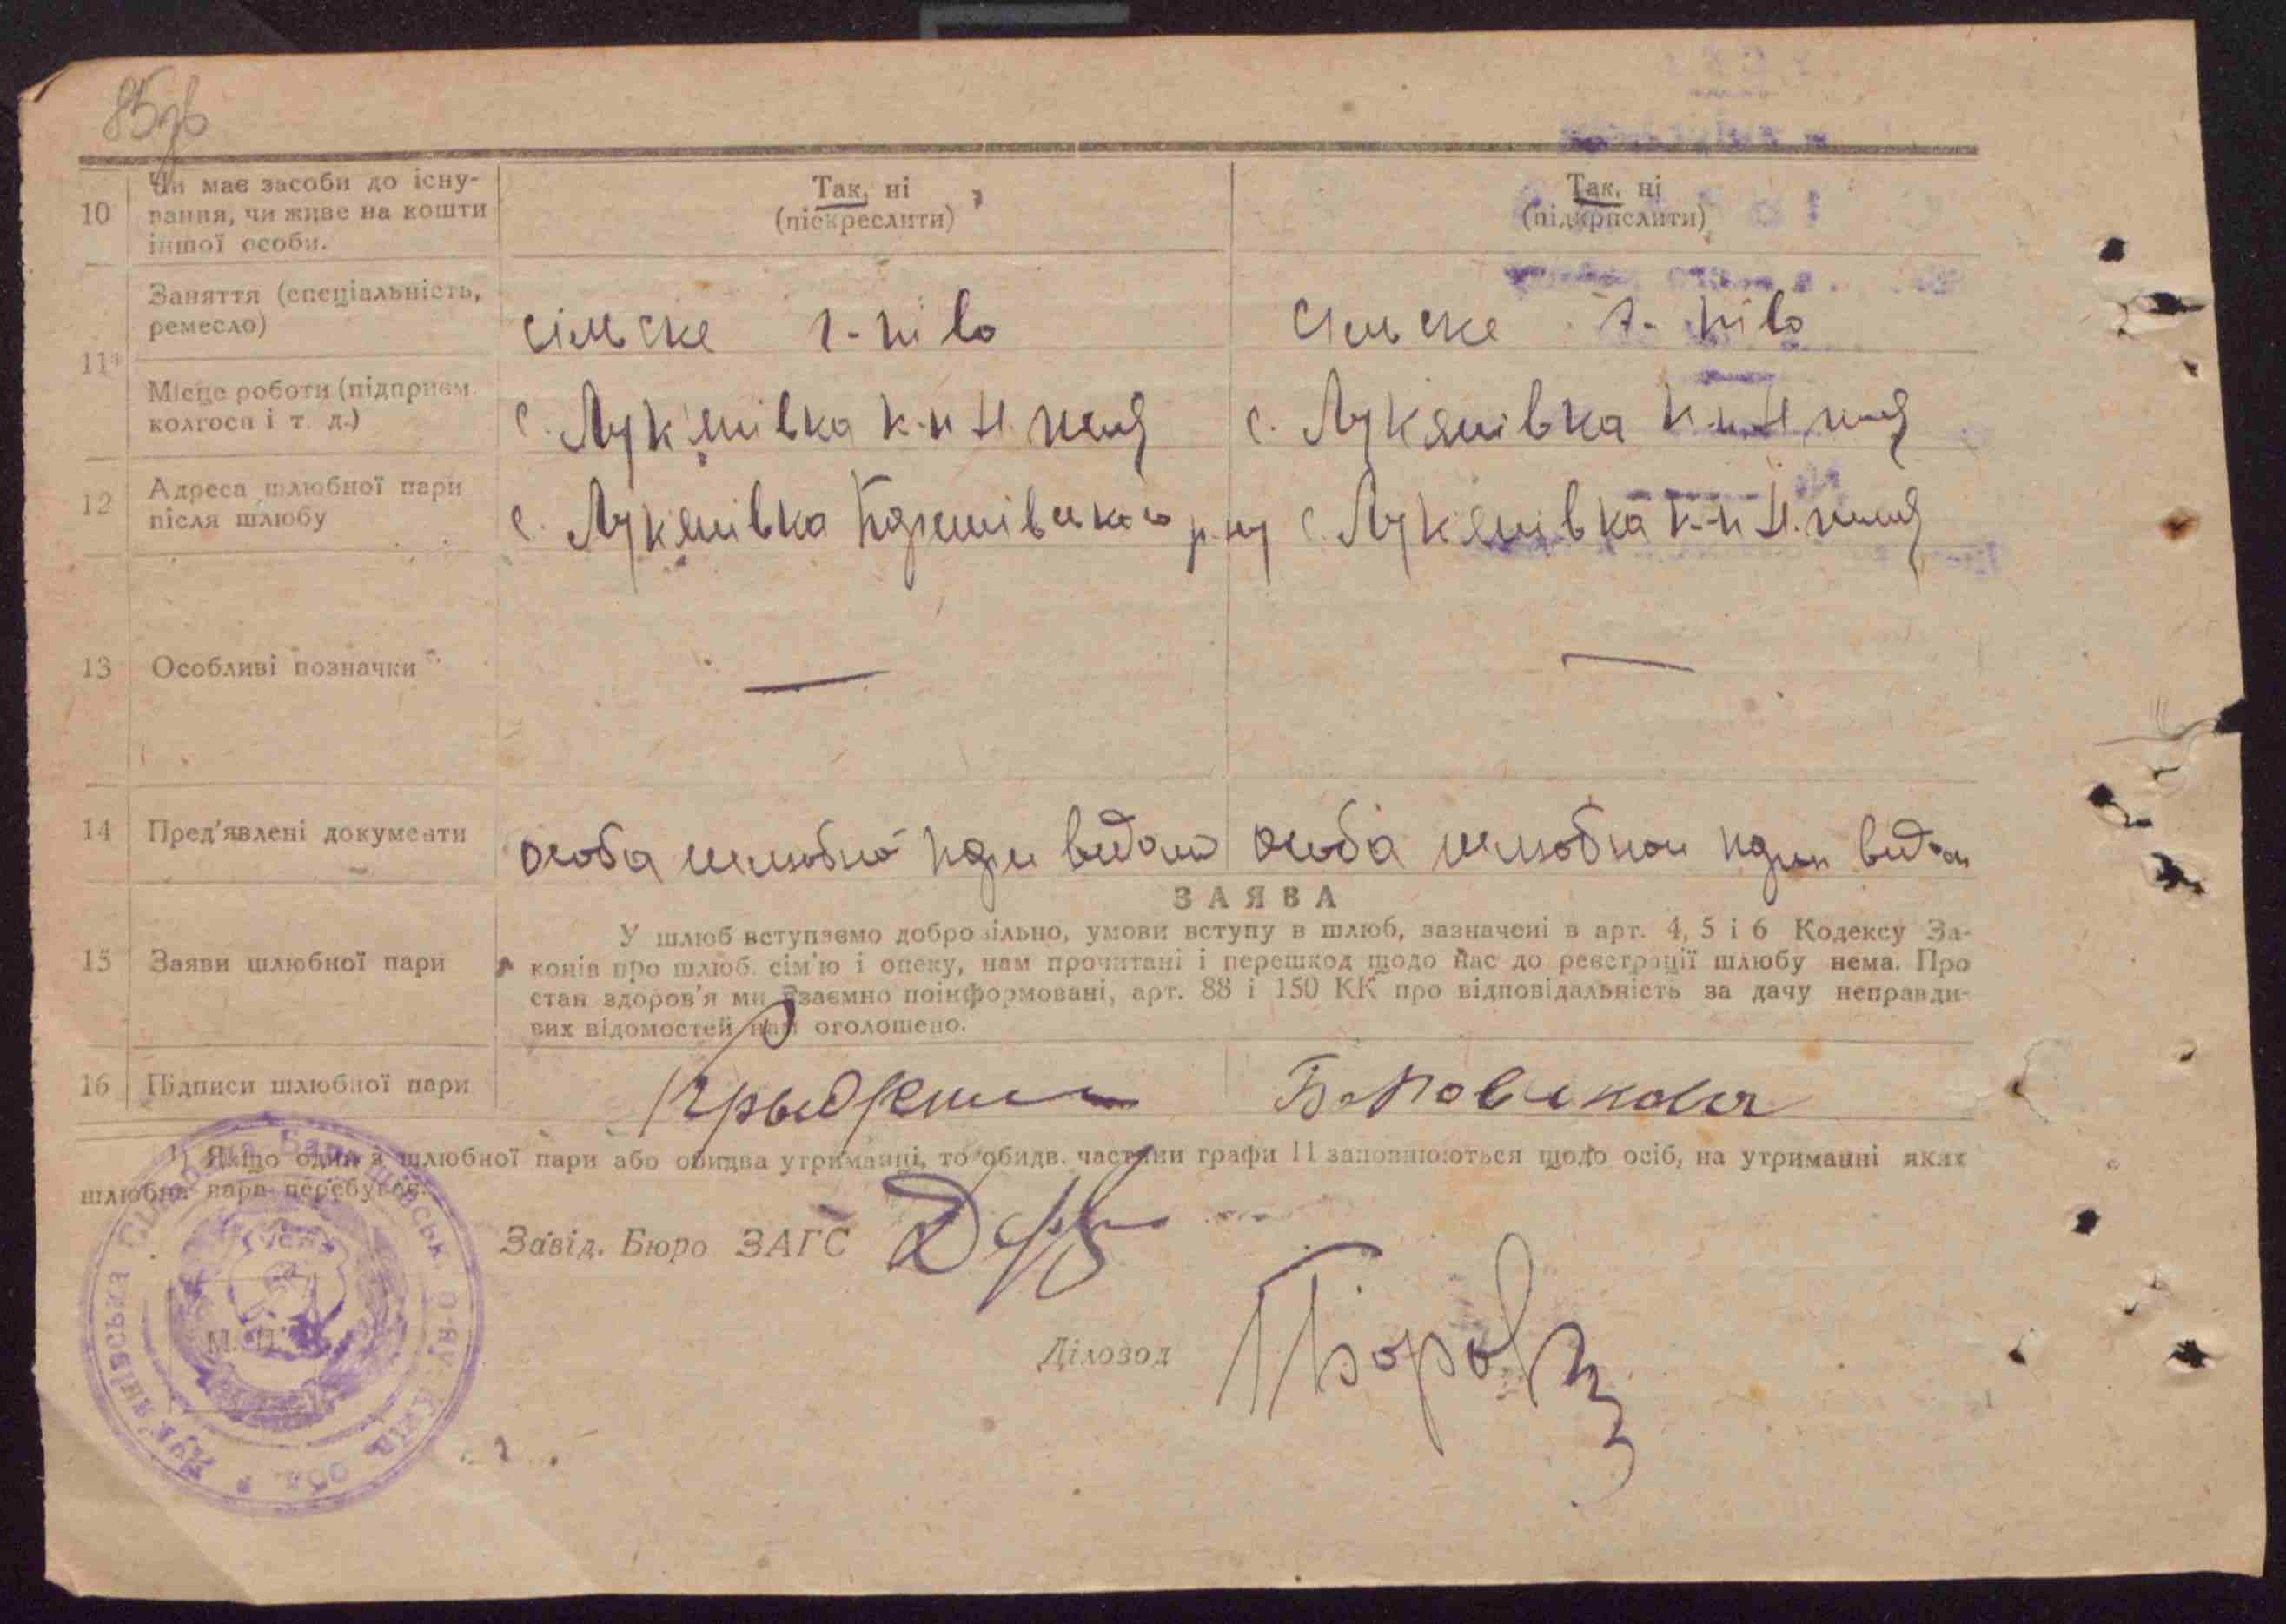 85зв
10 Чи має засоби до існу-
вання, чи живе на кошти
іншої особи.
Так, ні
(піскреслити)
Так, ні
(підкрпслити)
11*
Заняття (спеціальність,
ремесло)
сільське г-ніво
сільське г-ніво
Місце роботи (підприєм.
колгосп і т. д.)
с. Лук'янівка к-н
с. Лукянівка к-н
12 Адреса шлюбної пари
після шлюбу
с. Лукянівка р-ну
с. Лукянівка к-н
13 Особливі позначки
—
—
14 Пред'явлені документи
особа шлюбної пари видана
особа шлюбної пари видан
ЗАЯВА
15 Заяви шлюбної пари
У шлюб вступаємо добровільно, умови вступу в шлюб, зазначені в арт. 4, 5 і 6 Кодексу За-
конів про шлюб. сім'ю і опеку, нам прочитані і перешкод щодо нас до реєстрації шлюбу нема. Про
стан здоров'я ми взаємно поінформовані, арт. 88 і 150 КК про відповідальність за дачу неправди-
вих відомостей нам оголошено.
16 Підписи шлюбної пари
1) Якщо один з шлюбної пари або обидва утриманці, то обидв. частини графи 11 заповнюються щодо осіб, на утриманні яких
шлюбна пара перебуває.
Завід. Бюро ЗАГС
Діловод
М. П.
Лук'янівська Сільрада Баришівськ. р-ну Київ. обл.
УСРР